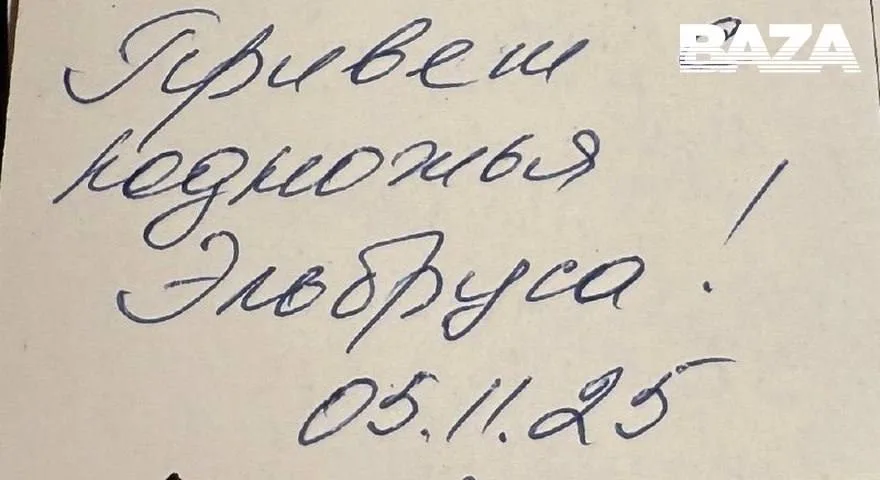 Привет с
подножья
Эльбруса!
05.11.25
BAZA